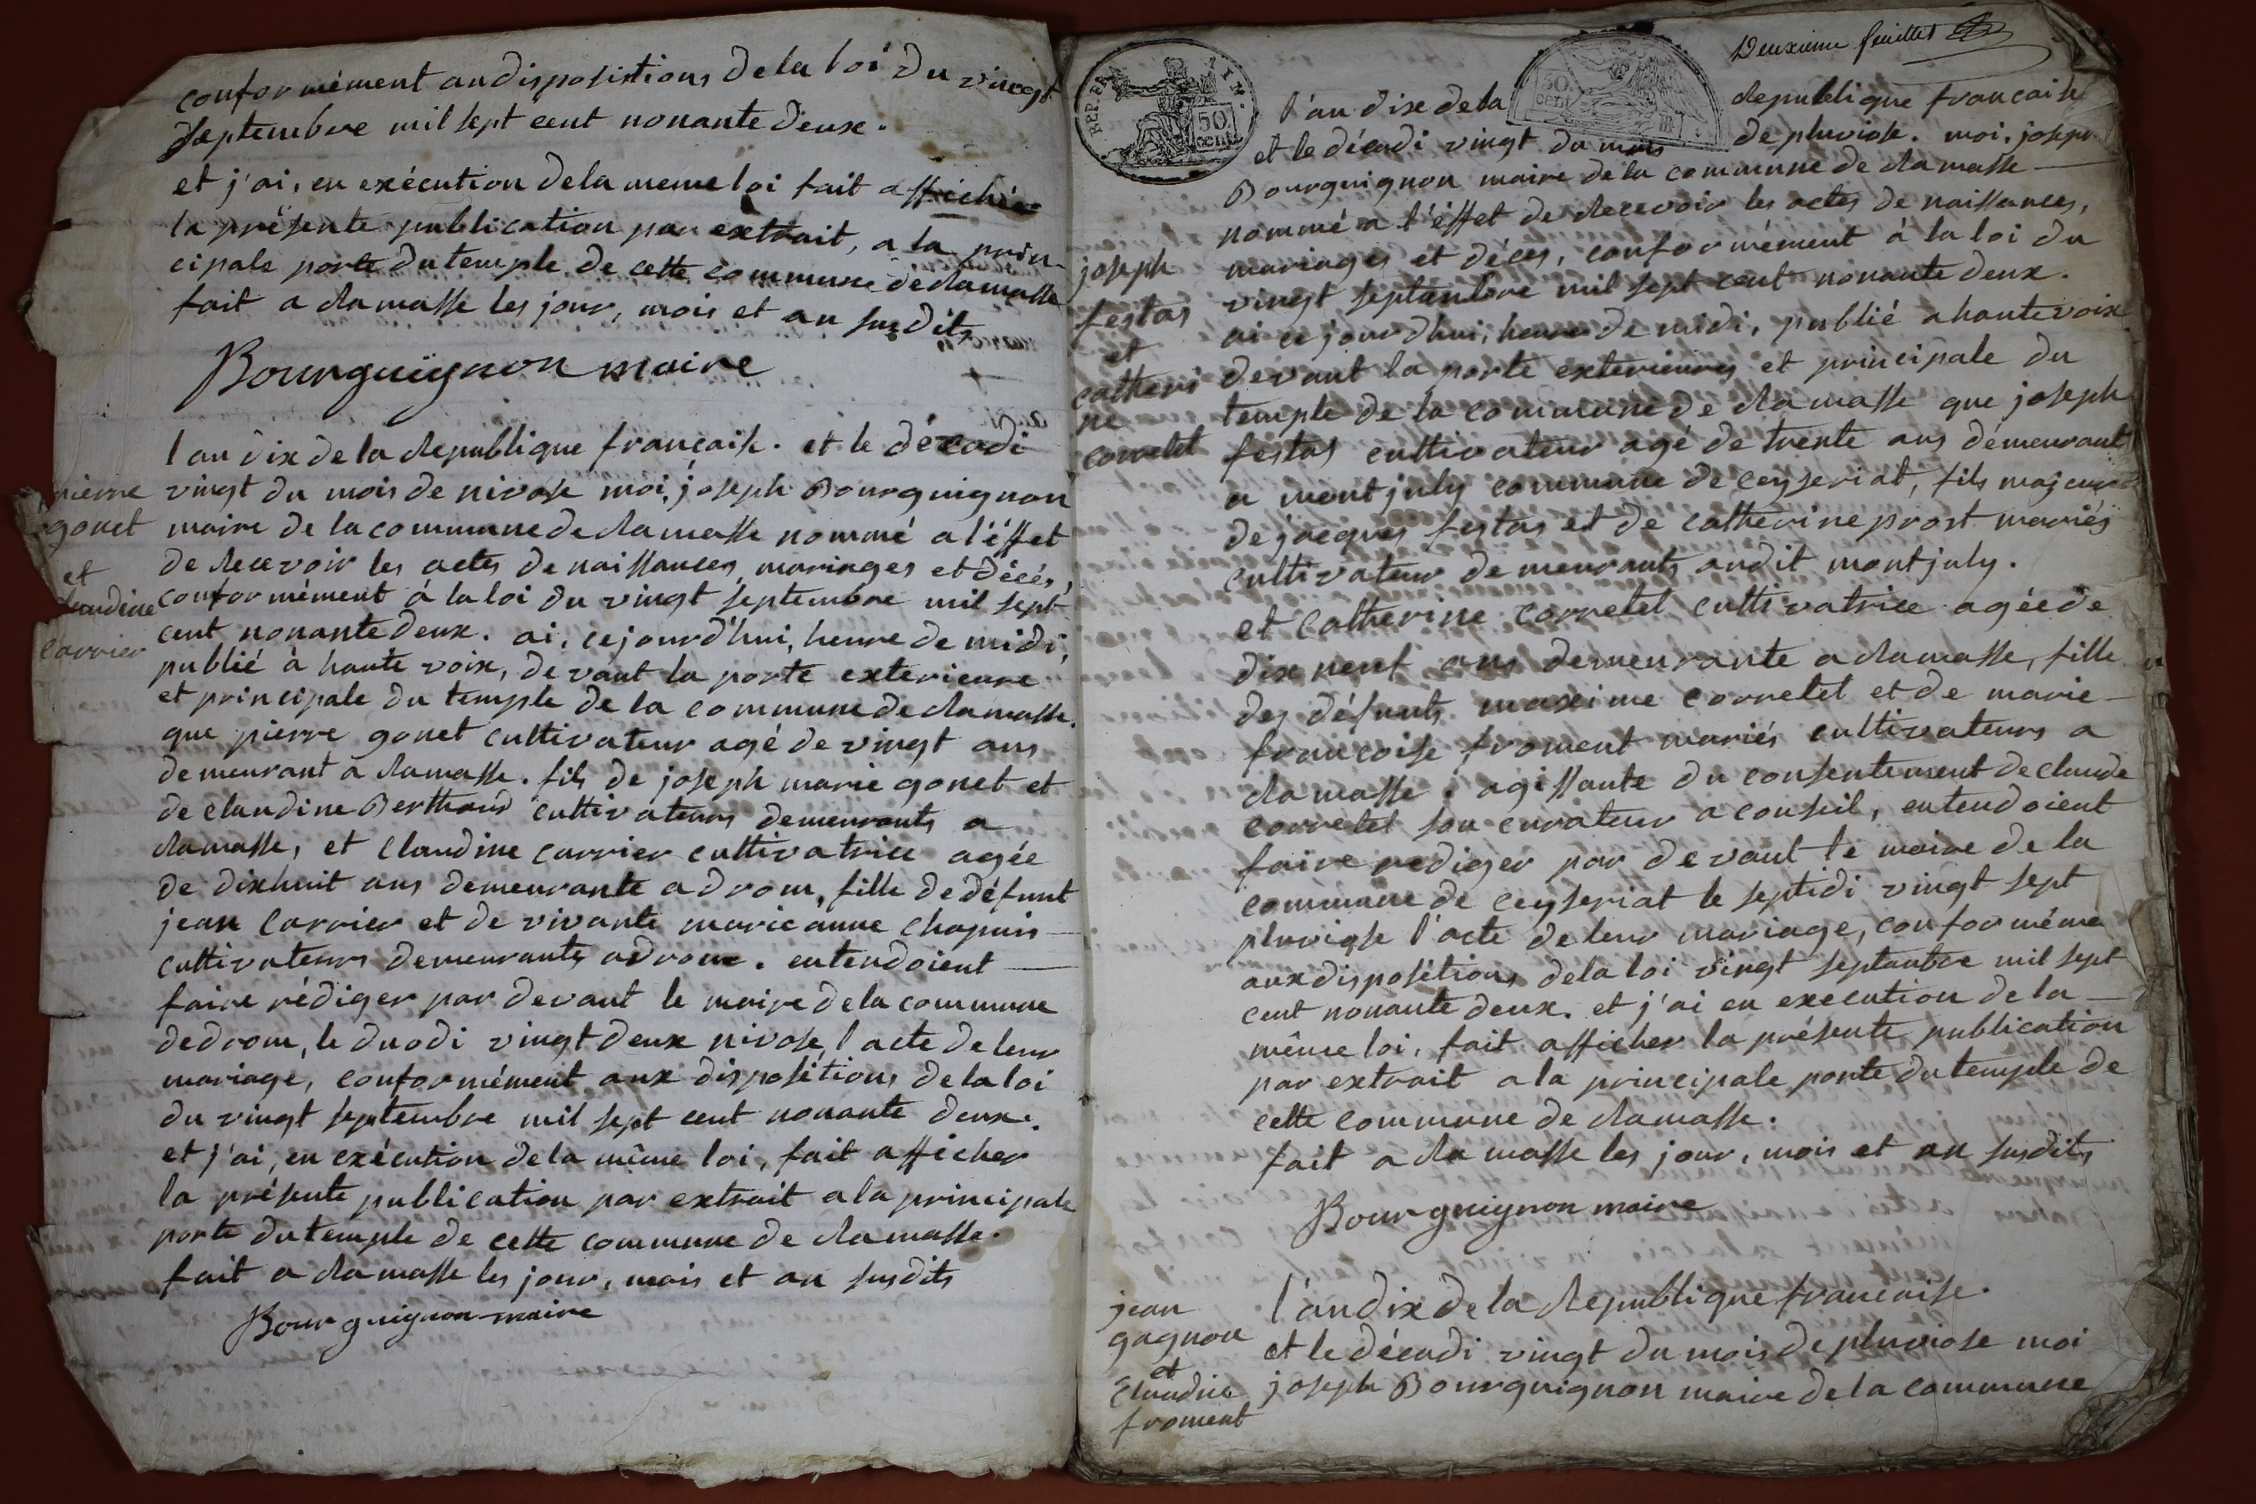 conformément au dispositions de la loi du vingt
septembre mil sept cent nonante deux.
et j'ai, en exécution de la meme loi fait affichér
la présente publication par extrait, a la prin-
cipale porte du temple de cette commune de ramasse
fait a ramasse les jour, mois et an susdits
Bourguignon maire
pierre
gonet
et
claudine
carrier
l'an dix de la republique française. et le décadi
vingt du mois de nivose moi, joseph Bourguignon
maire de la commune de ramasse nommé a l'éffet
de recevoir les actes de naissances, mariages et décés,
conformément à la loi du vingt septembre mil sept
cent nonante deux. ai, cejourd'hui, heure de midi,
publié à haute voix, devant la porte exterieure
et principale du temple de la commune de ramasse.
que pierre gonet cultivateur agé de vingt ans
demeurant à ramasse. fils de joseph marie gonet et
de claudine Berthand cultivateurs demeurants a
ramasse, et claudine carrier cultivatrice agée
de dixhuit ans demeurante a drom, fille de défunt
jean carrier et de vivante marie anne chapuis
cultivateurs demeurants a drom. entendoient
faire rédiger par devant le maire de la commune
de drom, le duodi vingt deux nivose l'acte de leur
mariage, conformément aux dispositions de la loi
du vingt septembre mil sept cent nonante deux.
et j'ai, en exécution de la même loi, fait afficher
la présente publication par extrait a la principale
porte du temple de cette commune de ramasse.
fait a ramasse les jour, mois et an susdits
Bourguignon maire
Deuxieme feuillet
REP. FRA
50
cent.
50
cent.
l'an dix de la republique française
et le décadi vingt du mois de pluviose. moi, joseph
Bourguignon maire de la commune de ramasse
nommé a l'éffet de recevoir les actes de naissances,
mariages et décés, conformément à la loi du
vingt septembre mil sept cent nonante deux.
ai ce jourd'hui, heure de midi, publié a haute voix
devant la porte exterieure et principale du
temple de la commune de ramasse que joseph
festas cultivateur agé de trente ans démeurant
a montjuly commune de ceyseriat, fils majeur
de jacques festas et de catherine prost mariés
cultivateurs demeurants audit montjuly.
et catherine corretel cultivatrice agée de
dix neuf ans demeurante a ramasse, fille
des défunts maxime corretel et de marie
francoise froment mariés cultivateurs a
ramasse. agissante du consentement de claude
corretel son curateur a conseil, entendoient
faire rediger par devant le maire de la
commune de ceyseriat le septidi vingt sept
pluviose l'acte de leur mariage, conformémé
aux dispositions de la loi vingt septembre mil sept
cent nonante deux. et j'ai en execution de la
même loi, fait afficher la présente publication
par extrait a la principale porte du temple de
cette commune de ramasse.
fait a ramasse les jour, mois et an susdits
Bourguignon maire
joseph
festas
et
catheri
ne
corretel
jean
gagnon
et
claudine
froment
l'an dix de la republique francaise.
et le décadi vingt du mois de pluviose moi
joseph Bourguignon maire de la commune